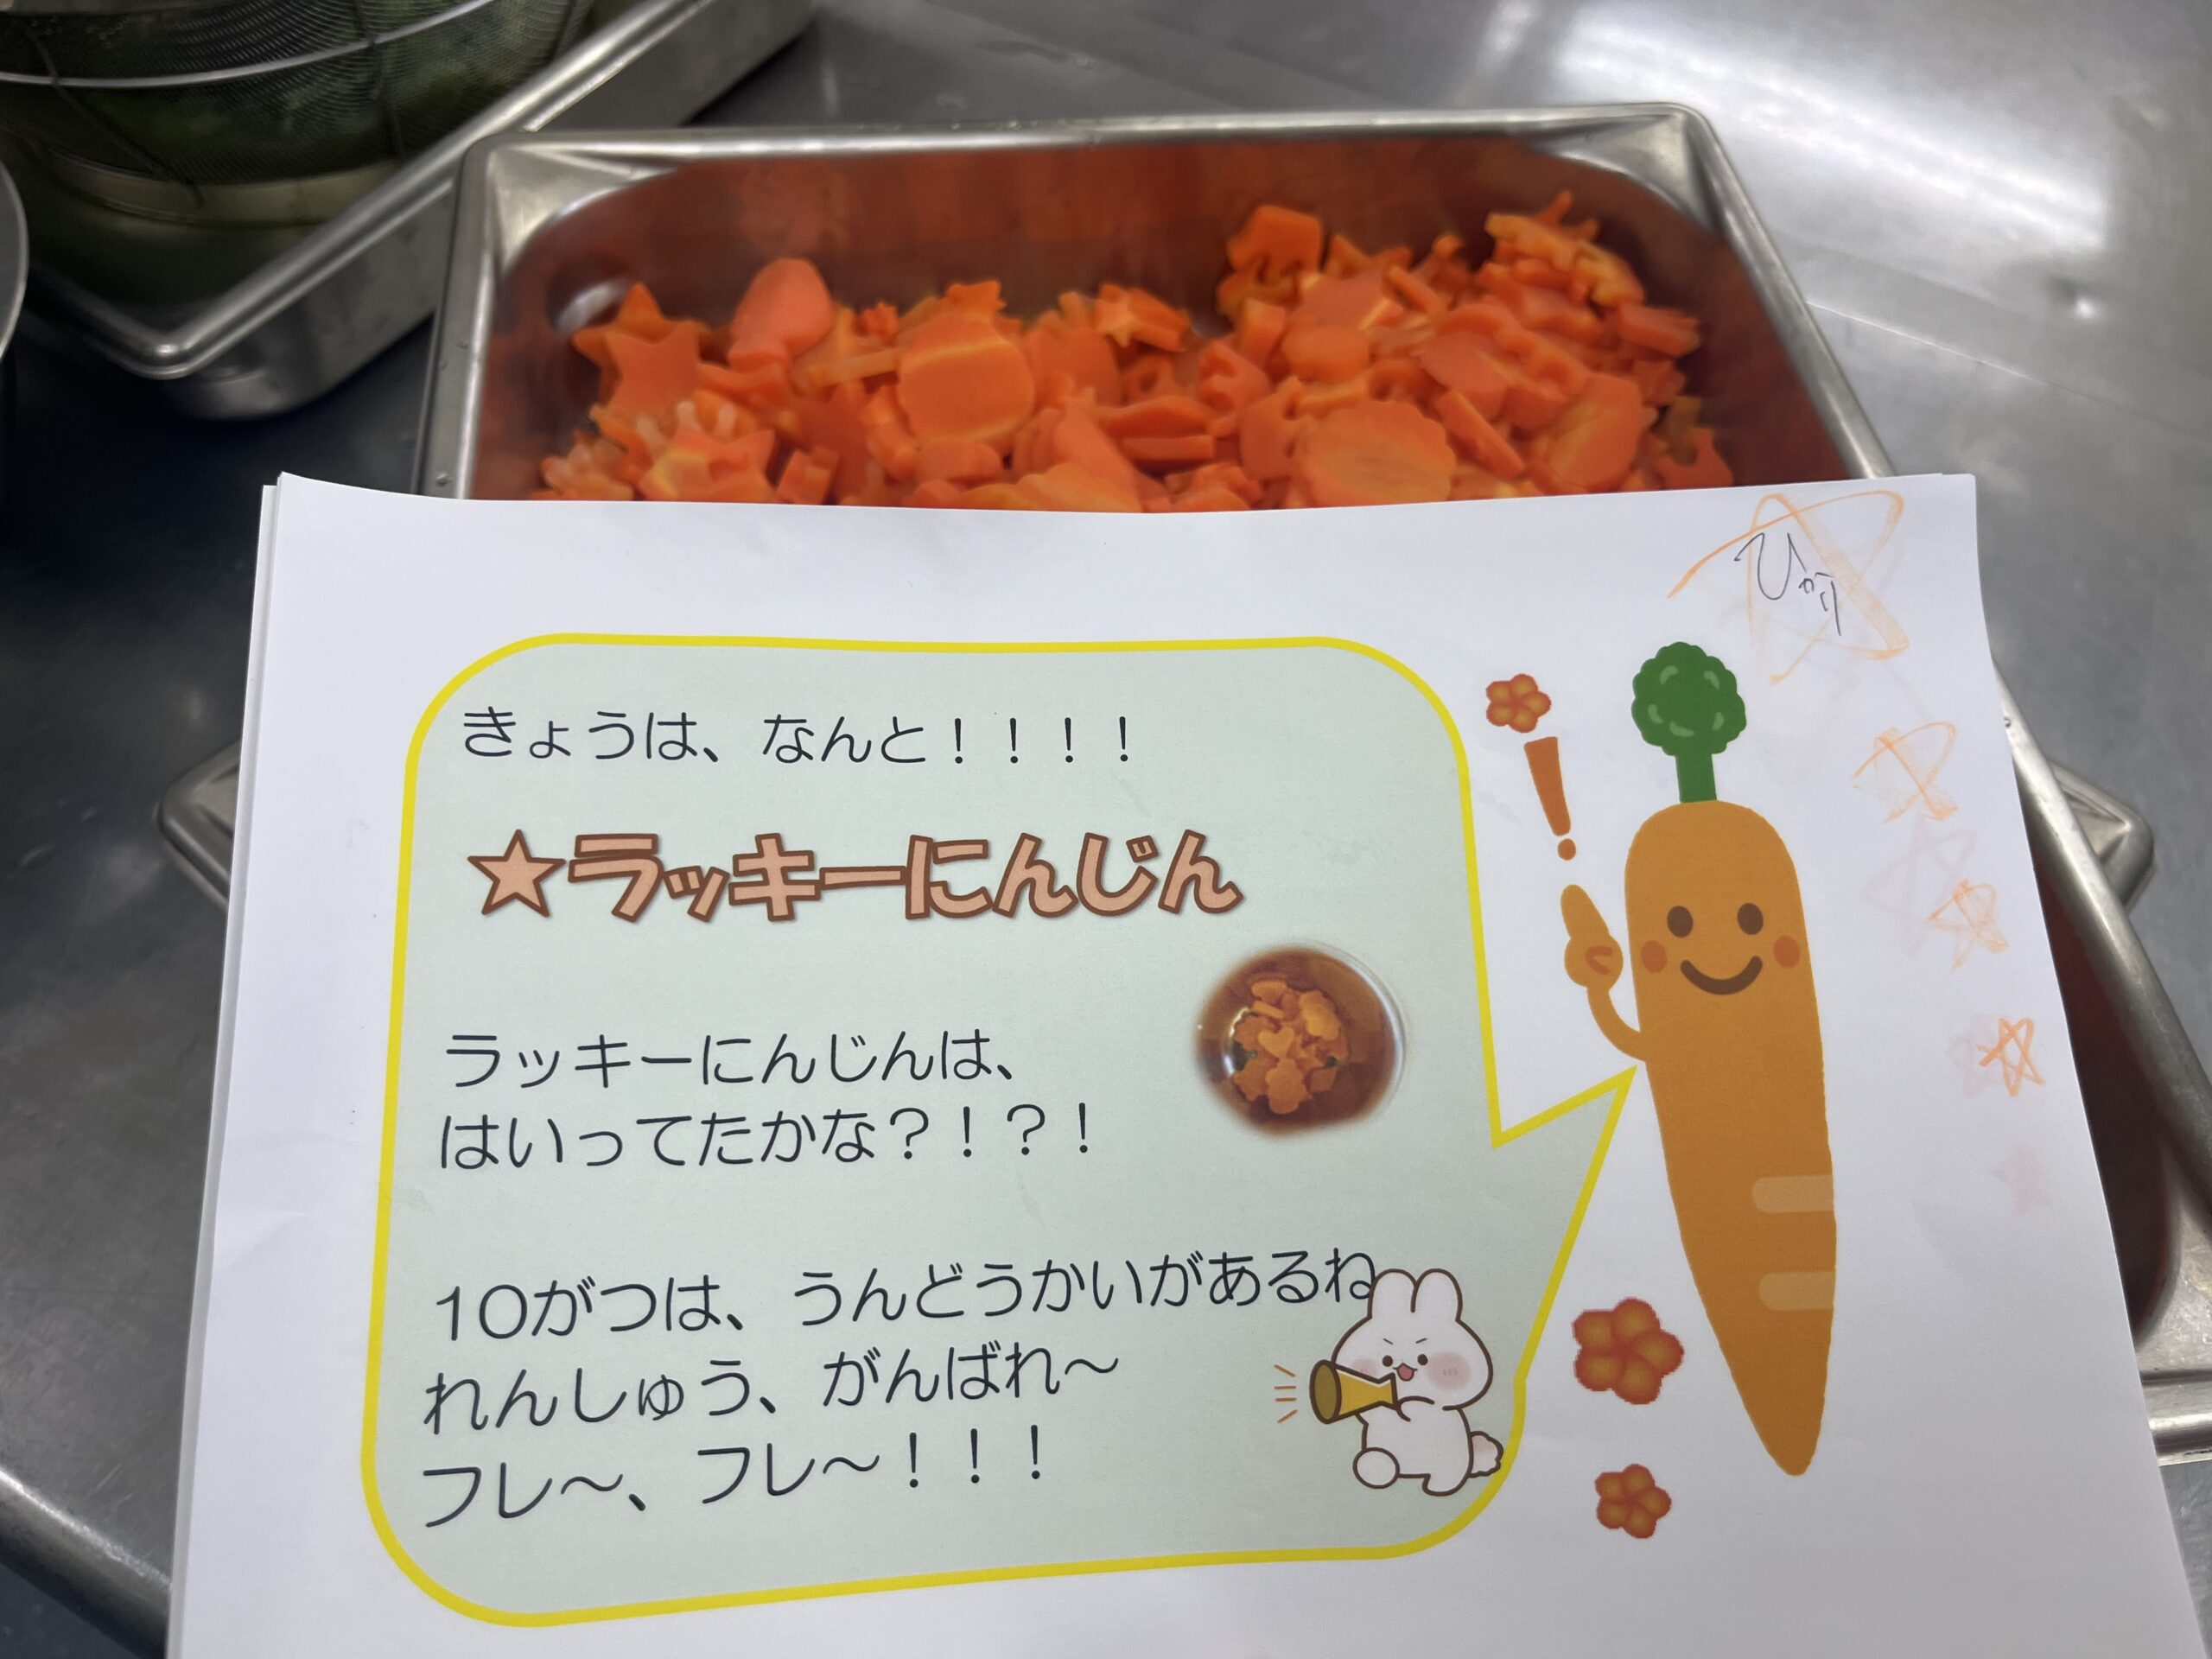 ひかり
きょうは、なんと！！！！
★ラッキーにんじん
ラッキーにんじんは、
はいってたかな？！？！
10がつは、うんどうかいがあるね
れんしゅう、がんばれ～
フレ～、フレ～！！！